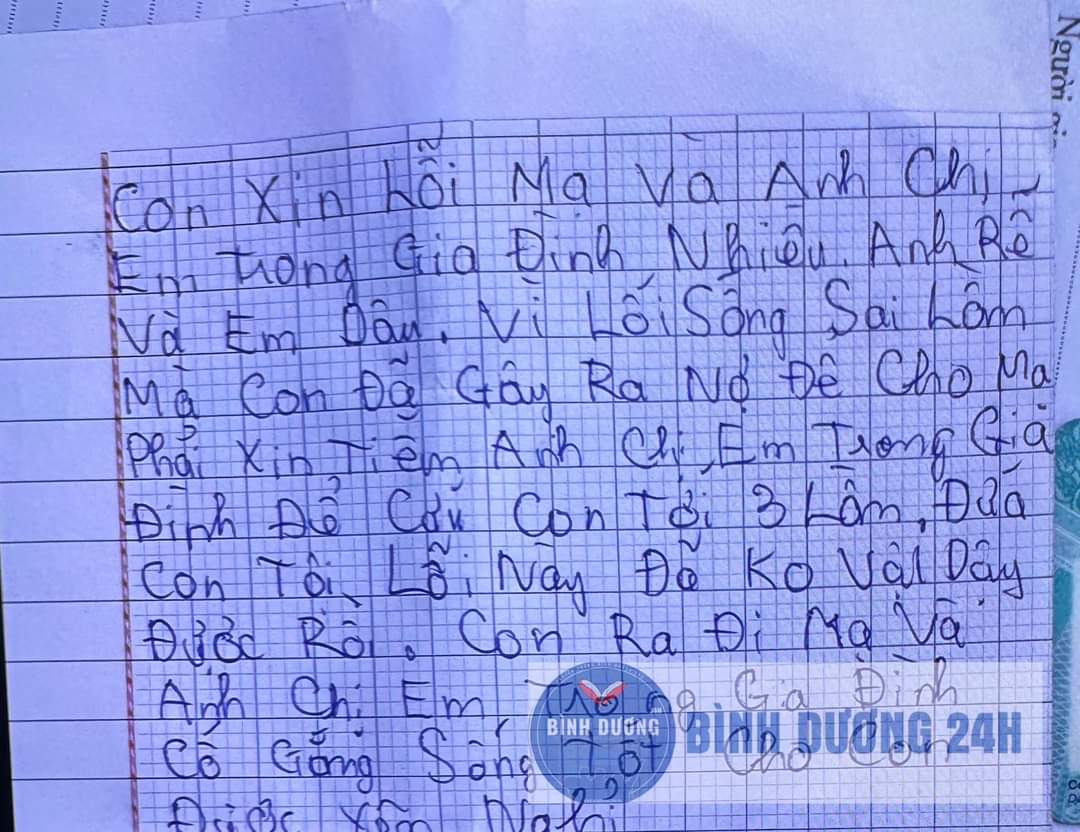 Người
Con Xin Lỗi Mạ Và Anh Chị
Em Trong Gia Đình Nhiều. Anh Rễ
Và Em Dâu. Vì Lối Sống Sai Lầm
Mà Con Đã Gây Ra Nợ Đê Cho Mạ
Phải Xin Tiềm Anh Chị, Em Trong Gia
Đình Để Cứu Con Tới 3 Lầm, Đứa
Con Tội Lỗi Này Đã Ko Vật Dậy
Được Rồi. Con Ra Đi Mạ Và
Anh Chị Em Trong Gia Đình
Cố Gắng Sống Tốt Cho Con
Được Yên Nghỉ
BÌNH DƯƠNG
BÌNH DƯƠNG 24H